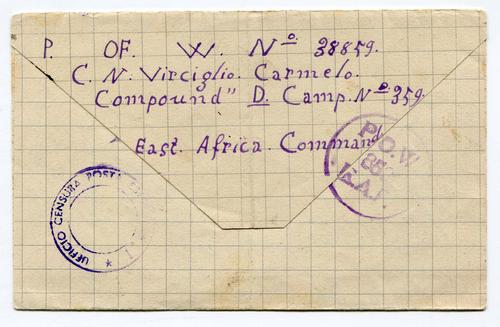 P. OF. W. Nº. 38859.
C. N. Virciglio. Carmelo.
Compound" D. Camp. Nº. 359.
East. Africa. Command
P.O.W
E.A.
UFFICIO CENSURA POSTA